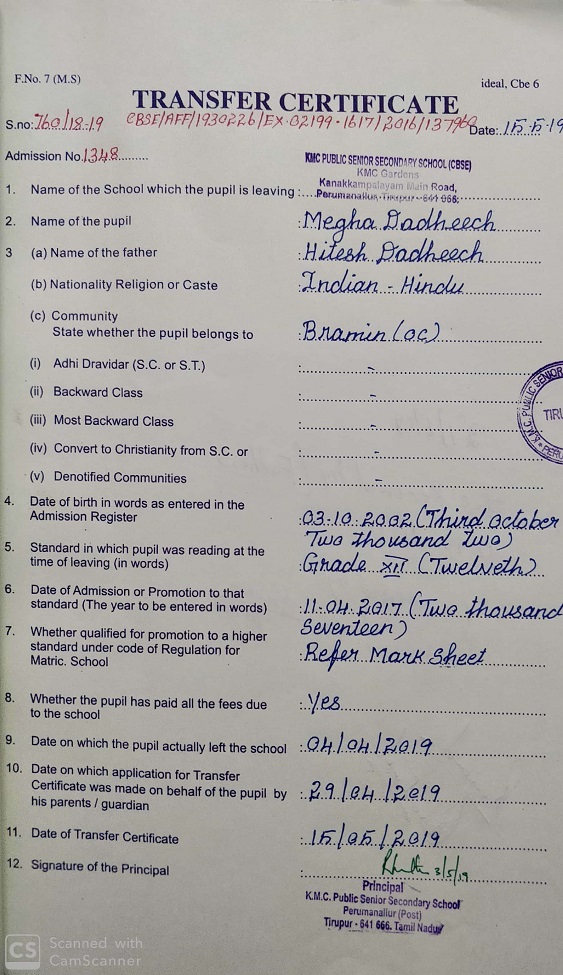 F.No. 7 (M.S)
ideal, Cbe 6
TRANSFER CERTIFICATE
S.no: 760/18-19 CBSE/AFF/1930226/EX-02199-1617/2016/137960 Date: 15.5.19
Admission No. 1348
KMC PUBLIC SENIOR SECONDARY SCHOOL (CBSE)
KMC Gardens
1. Name of the School which the pupil is leaving : Kanakkampalayam Main Road,
Perumanallur, Tirupur - 641 666.
2. Name of the pupil : Megha Dadheech
3 (a) Name of the father : Hitesh Dadheech
(b) Nationality Religion or Caste : Indian - Hindu
(c) Community
State whether the pupil belongs to : Bramin (oc)
(i) Adhi Dravidar (S.C. or S.T.) : -
(ii) Backward Class : -
(iii) Most Backward Class : -
(iv) Convert to Christianity from S.C. or : -
(v) Denotified Communities : -
K.M.C. PUBLIC SENIOR
TIRU
PERU
4. Date of birth in words as entered in the
Admission Register : 03-10-2002 (Third october
Two thousand two)
5. Standard in which pupil was reading at the
time of leaving (in words) : Grade XII (Twelveth)
6. Date of Admission or Promotion to that
standard (The year to be entered in words) : 11-04-2017 (Two thousand
Seventeen)
7. Whether qualified for promotion to a higher
standard under code of Regulation for : Refer Mark Sheet
Matric. School
8. Whether the pupil has paid all the fees due
to the school : Yes
9. Date on which the pupil actually left the school : 04/04/2019
10. Date on which application for Transfer
Certificate was made on behalf of the pupil by : 29/04/2019
his parents / guardian
11. Date of Transfer Certificate : 15/05/2019
12. Signature of the Principal : 3/5/19
Principal
K.M.C. Public Senior Secondary School
Perumanallur (Post)
Tirupur - 641 666. Tamil Nadu
CS Scanned with
CamScanner